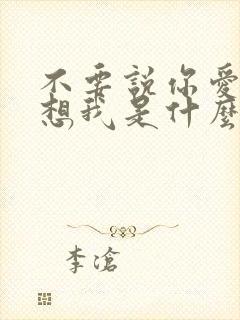 不要說你愛
想我是什麼
李滄